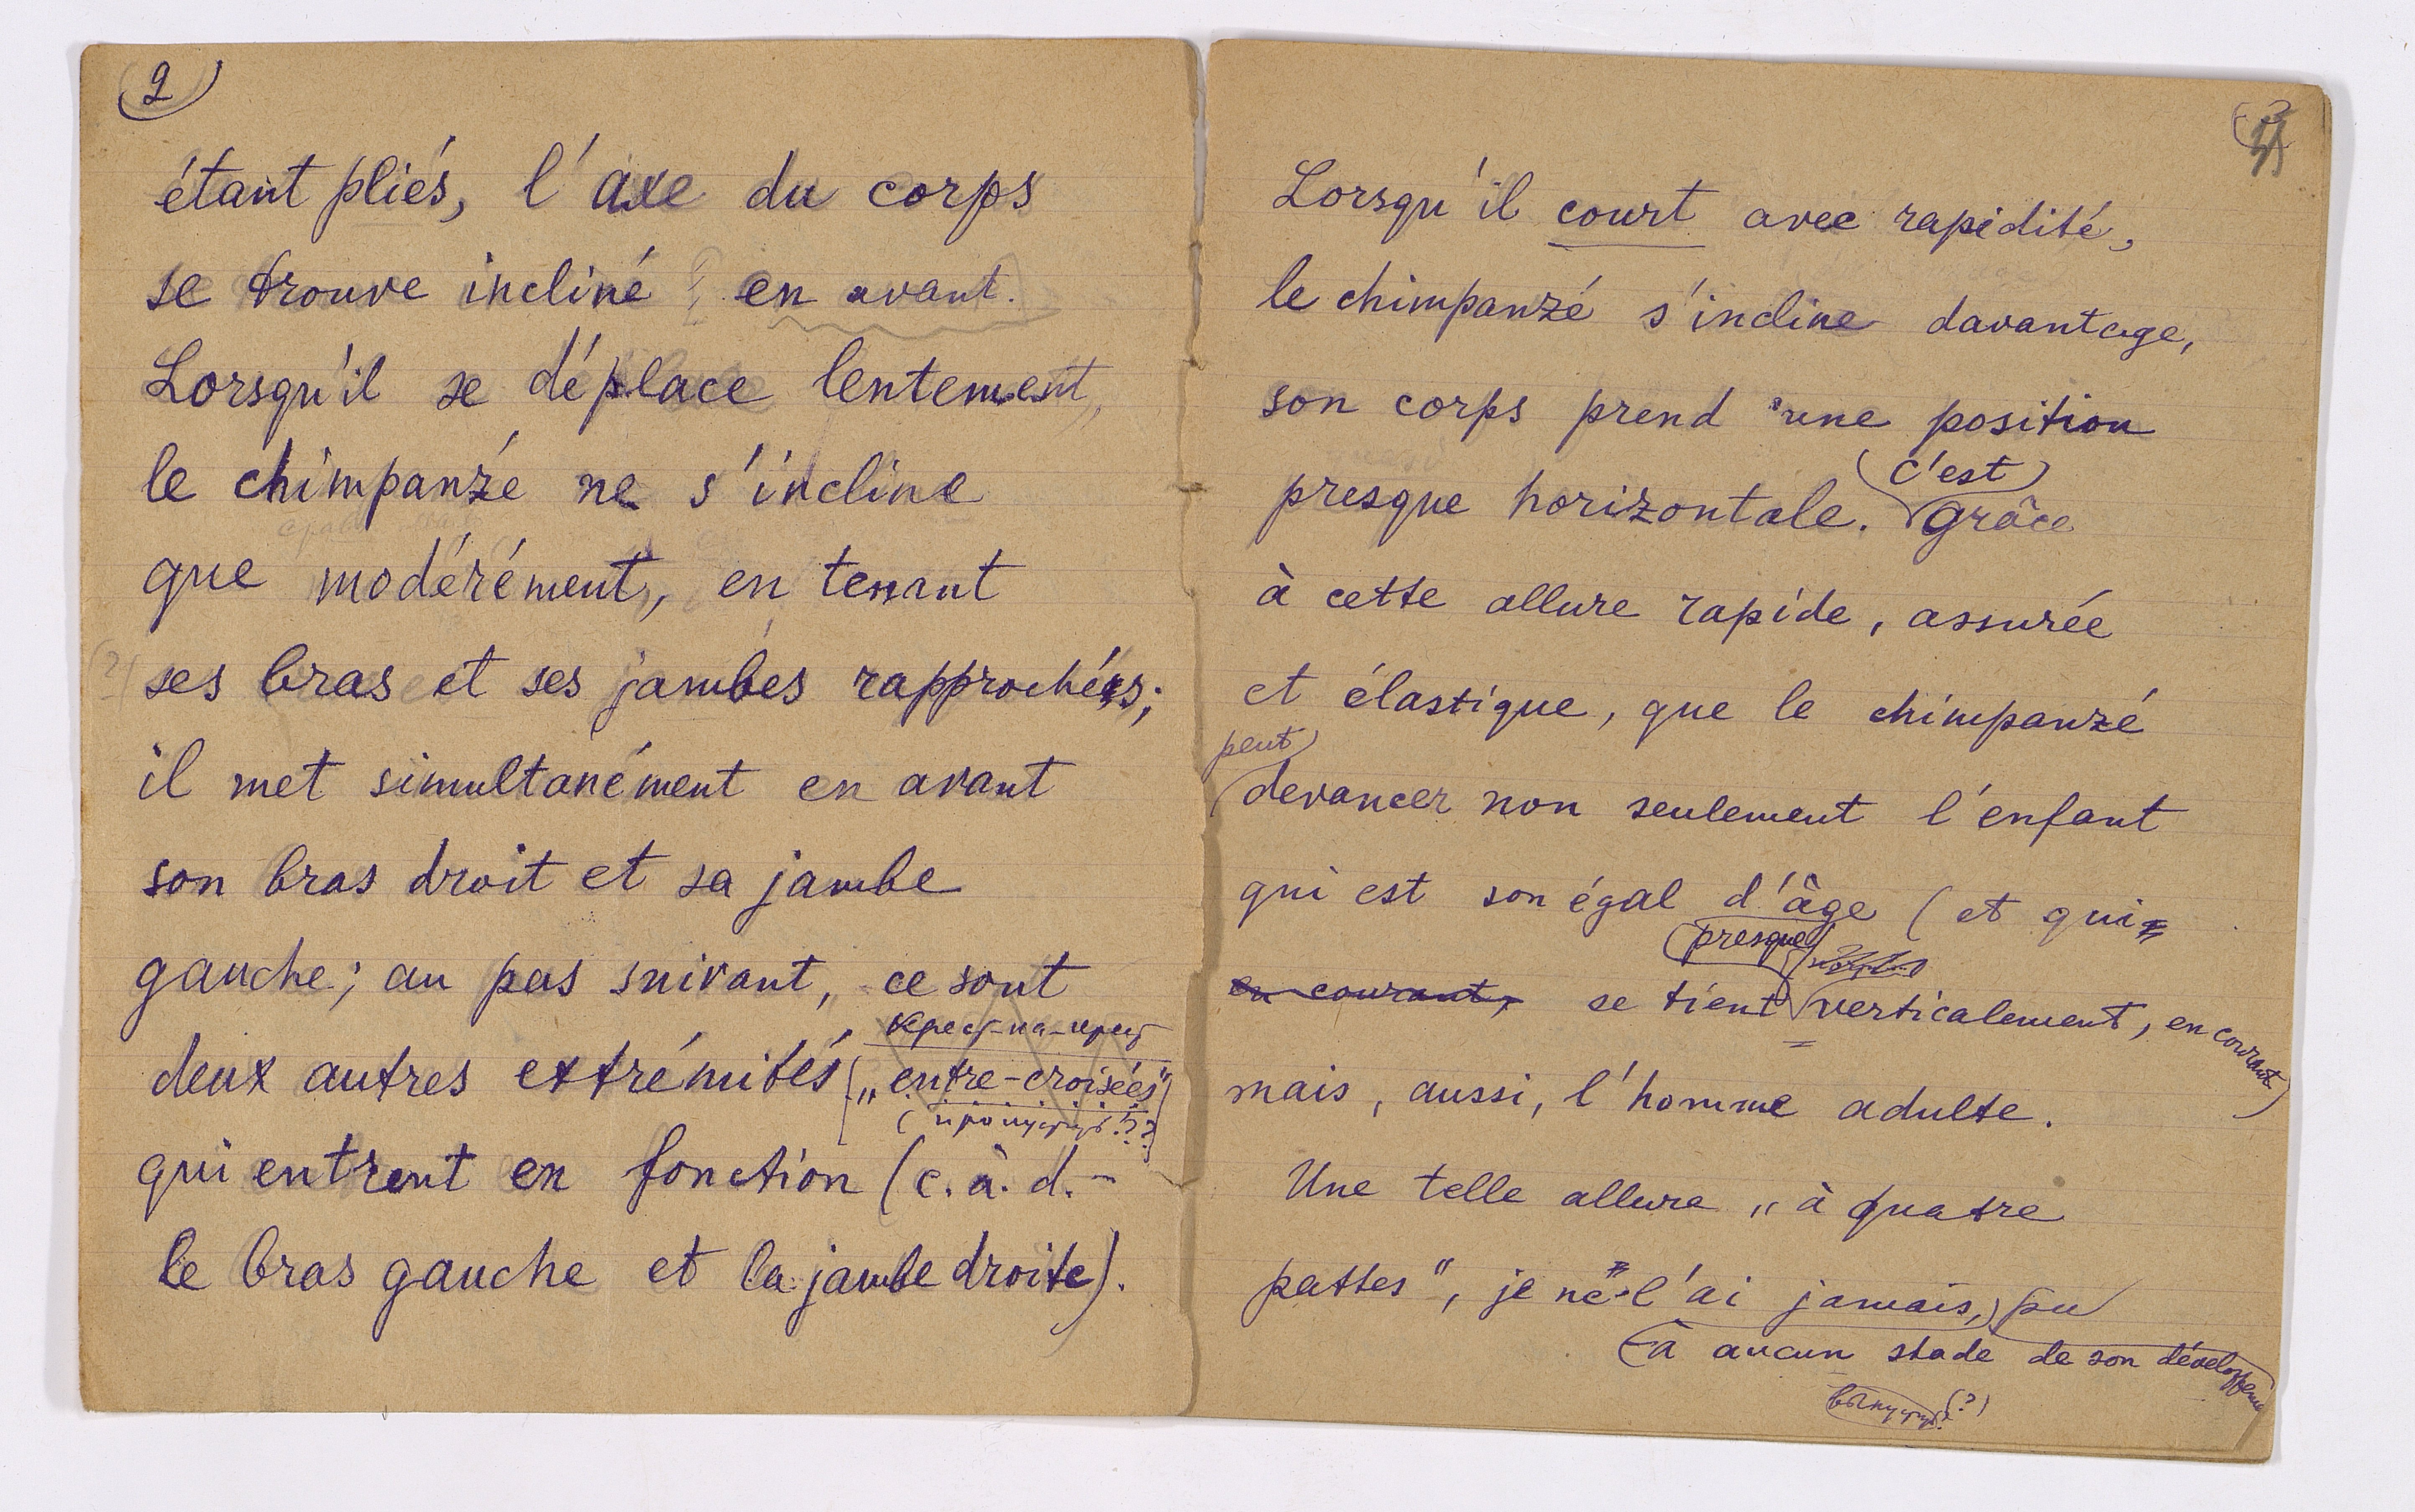 2
étant pliés, l'axe du corps
se trouve incliné ? en avant.
Lorsqu'il se déplace lentement,
le chimpanzé ne s'incline
que modérément, en tenant
(?) ses bras et ses jambes rapprochées;
il met simultanément en avant
son bras droit et sa jambe
gauche; au pas suivant, ce sont
крест-на-крест
deux autres extrémités „entre-croisées"
(пропустить??
qui entrent en fonction (c. à. d. -
le bras gauche et la jambe droite).
3
Lorsqu'il court avec rapidité,
le chimpanzé s'incline davantage,
son corps prend une position
c'est
presque horizontale. Grâce
à cette allure rapide, assurée
et élastique, que le chimpanzé
peut
devancer non seulement l'enfant
qui est son égal d'âge (et qui
presque
en courant, se tient verticalement, en courant)
mais, aussi, l'homme adulte.
Une telle allure „à quatre
pattes", je ne l'ai jamais, pu
à aucun stade de son développeme
(?)